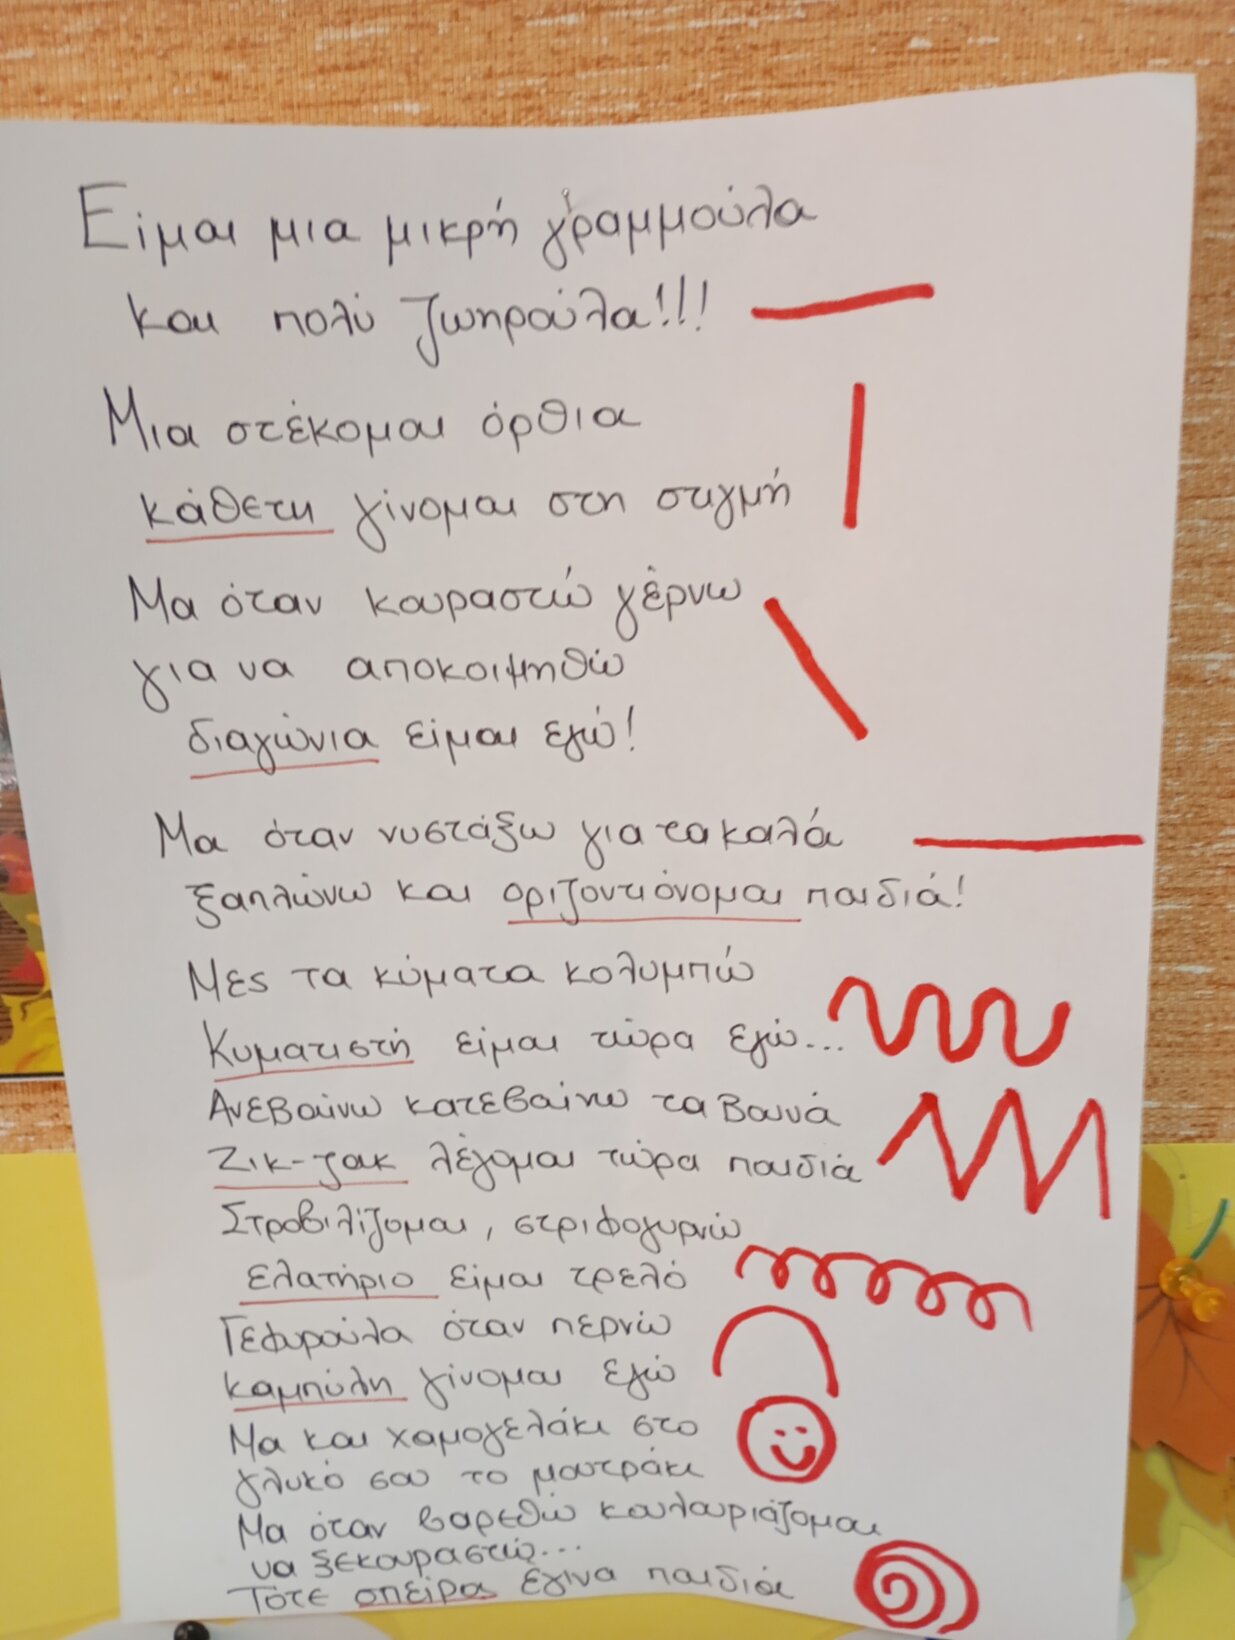 Είμαι μια μικρή γραμμούλα
και πολύ ζωηρούλα!!!
Μια στέκομαι όρθια
κάθετη γίνομαι στη στιγμή
Μα όταν κουραστώ γέρνω
για να αποκοιμηθώ
διαγώνια είμαι εγώ!
Μα όταν νυστάξω για τα καλά
ξαπλώνω και οριζοντιόνομαι παιδιά!
Μες τα κύματα κολυμπώ
Κυματιστή είμαι τώρα εγώ...
Ανεβαίνω κατεβαίνω τα βουνά
Ζικ-ζακ λέγομαι τώρα παιδιά
Στροβιλίζομαι, στριφογυρνώ
ελατήριο είμαι τρελό
Γεφυρούλα όταν περνώ
καμπύλη γίνομαι εγώ
Μα και χαμογελάκι στο
γλυκό σου το μουτράκι
Μα όταν βαρεθώ κουλουριάζομαι
να ξεκουραστώ...
Τότε σπείρα έγινα παιδιά